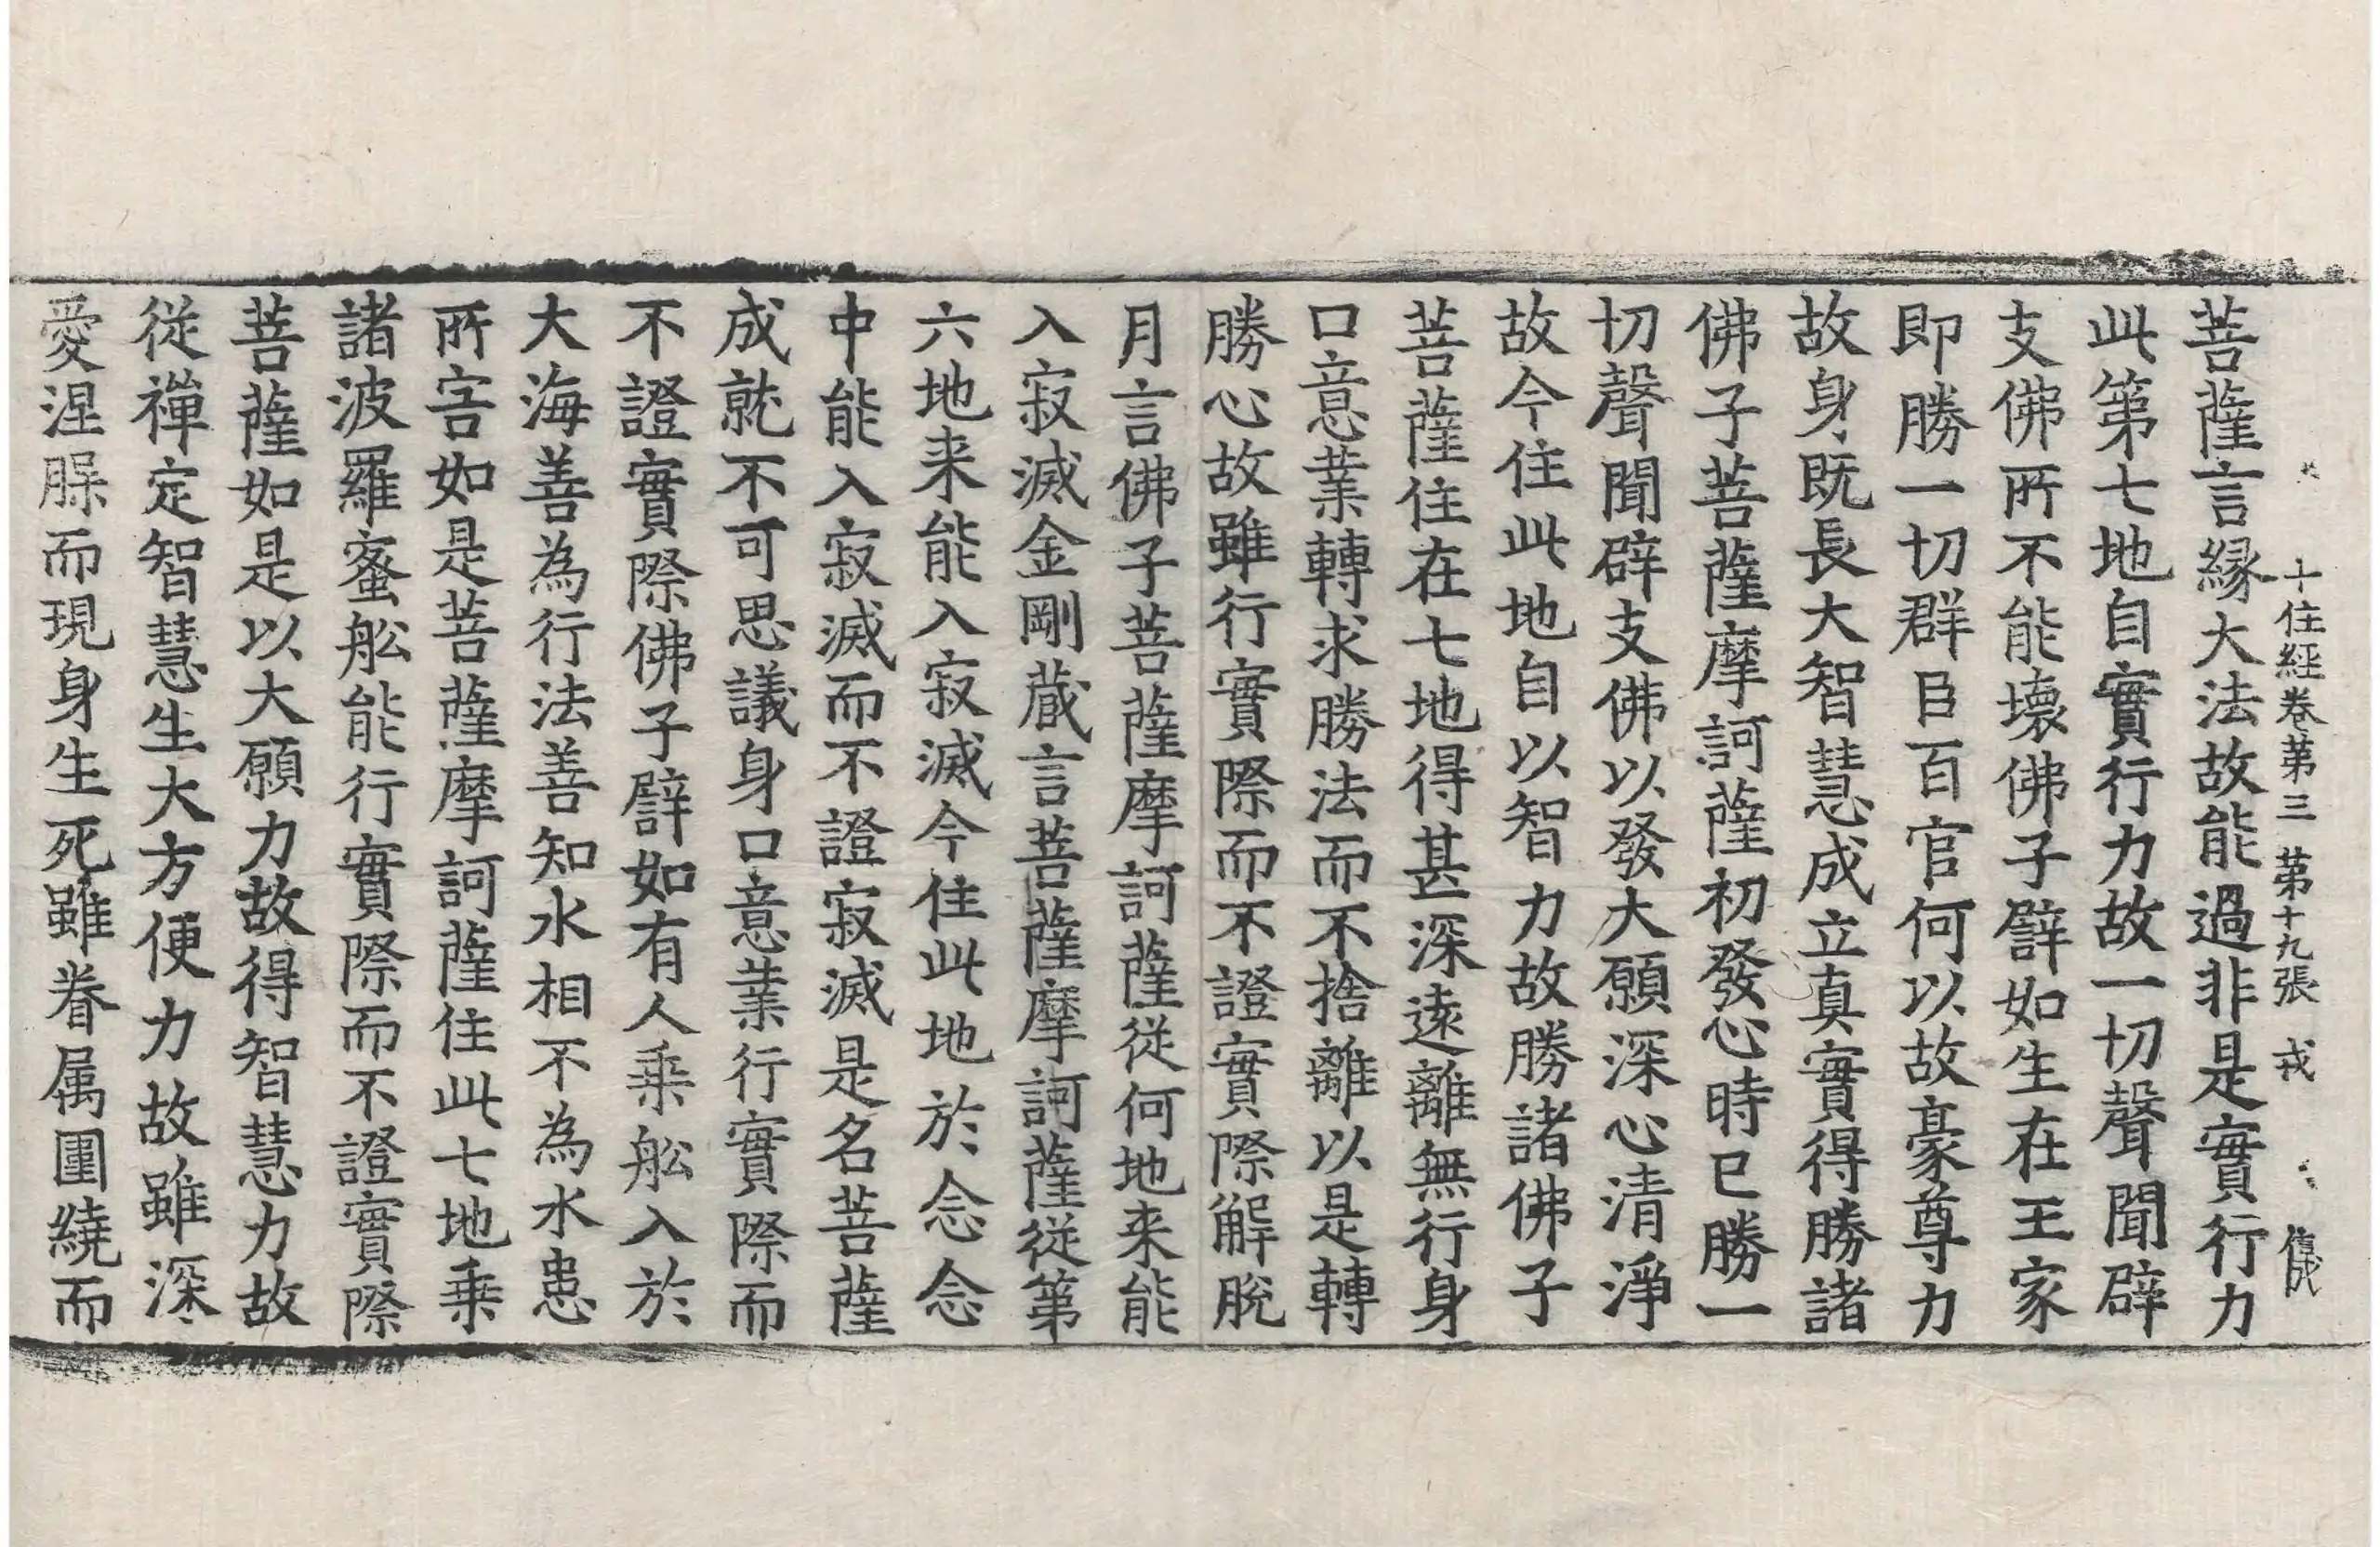 十住経卷第三 第十九張 戎
菩薩言縁大法故能過非是實行力
此第七地自實行力故一切聲聞辟
支佛所不能壞佛子譬如生在王家
即勝一切群臣百官何以故豪尊力
故身既長大智慧成立真實得勝諸
佛子菩薩摩訶薩初發心時已勝一
切聲聞辟支佛以發大願深心清淨
故今住此地自以智力故勝諸佛子
菩薩住在七地得甚深遠離無行身
口意業轉求勝法而不捨離以是轉
勝心故雖行實際而不證實際解脫
月言佛子菩薩摩訶薩從何地来能
入寂滅金剛藏言菩薩摩訶薩從第
六地来能入寂滅今住此地於念念
中能入寂滅而不證寂滅是名菩薩
成就不可思議身口意業行實際而
不證實際佛子譬如有人乗舩入於
大海善為行法善知水相不為水患
所害如是菩薩摩訶薩住此七地乗
諸波羅蜜舩能行實際而不證實際
菩薩如是以大願力故得智慧力故
從禪定智慧生大方便力故雖深
愛涅槃而現身生死雖眷属圍繞而